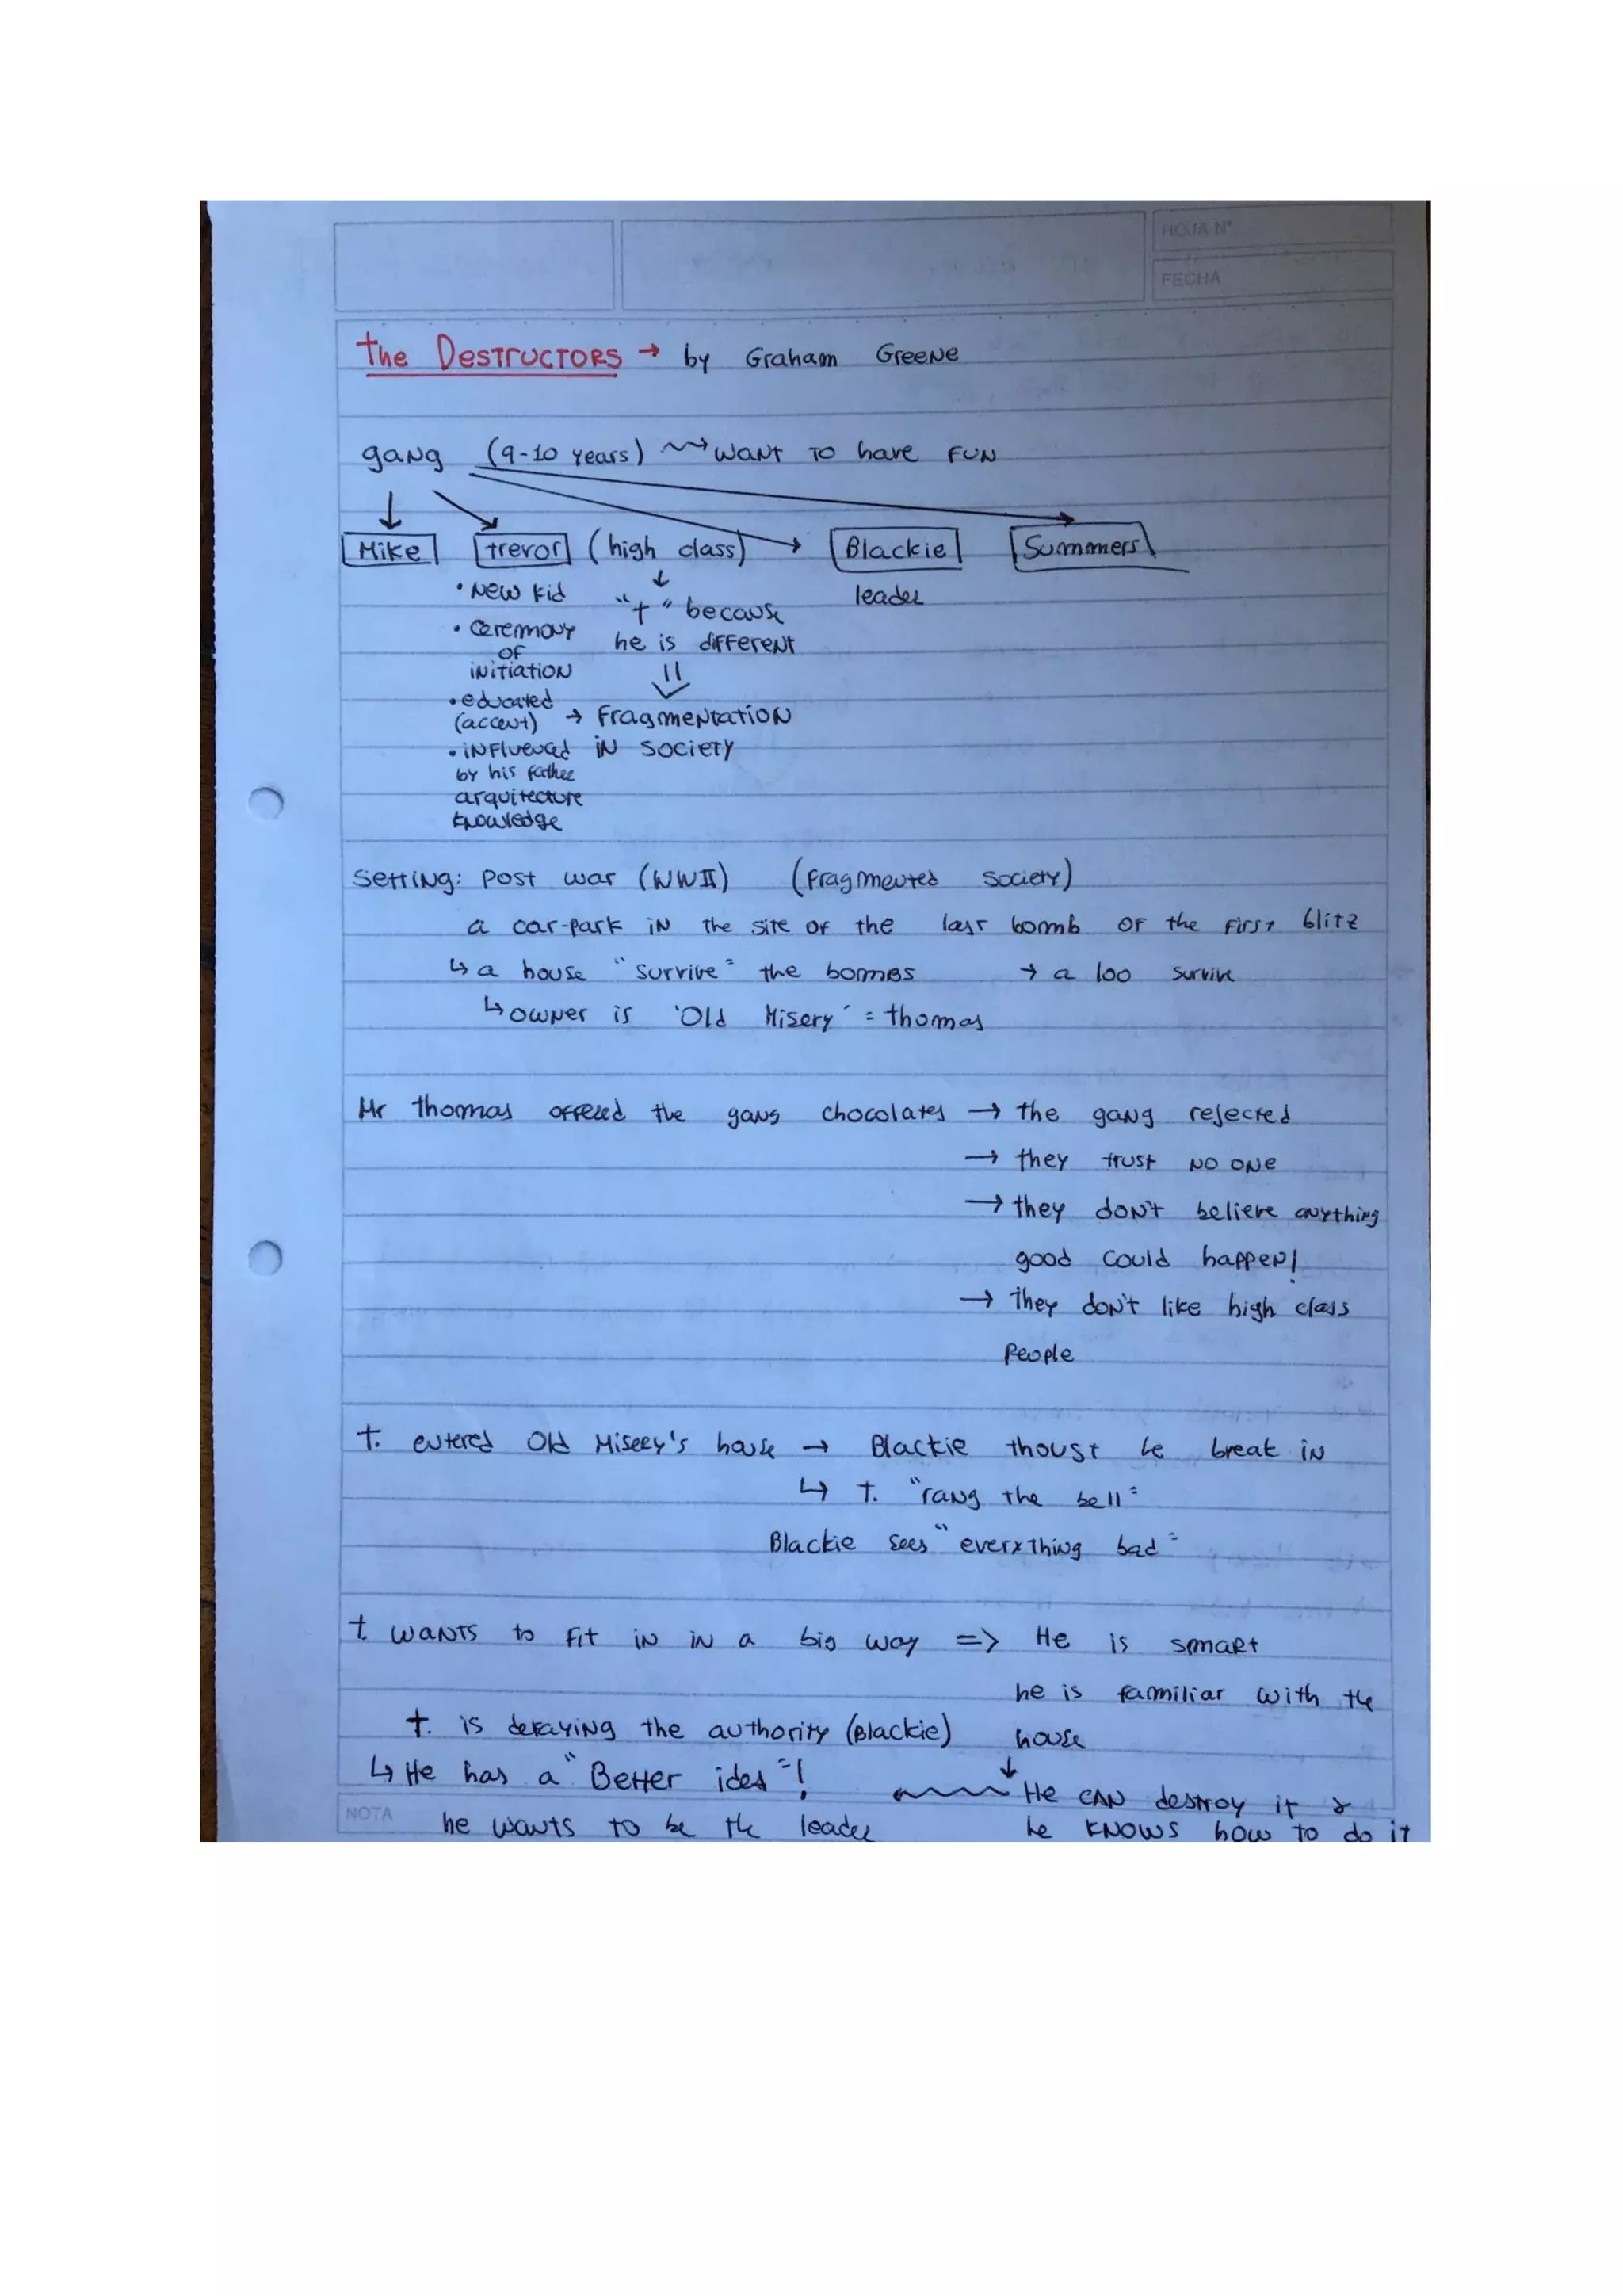 HOJA N°
FECHA
the Destructors → by Graham Greene
gang (9-10 years) ⇝ want to have fun
Mike Trevor (high class) → Blackie Summers
• New kid
"t" because
leader
• Ceremony of initiation
he is different
• educated (accent) → Fragmentation in society
• influenced by his father
arquitecture
knowledge
Setting: Post war (WWII) (Fragmented society)
a car-park in the site of the last bomb of the first blitz
↳ a house "survive" the bombs → a loo survive
↳ owner is 'Old Misery' = thomas
Mr thomas offered the gang chocolates → the gang rejected
→ they trust no one
→ they don't believe anything
good could happen!
→ they don't like high class
People
t. entered Old Misery's house → Blackie thougt he break in
↳ t. "rang the bell"
Blackie sees "everything bad"
t. wants to fit in in a big way => He is smart
he is familiar with the
t. is defaying the authority (Blackie) house
↳ He has a "Better idea"! ↓
He can destroy it &
NOTA he wants to be the leader he knows how to do it